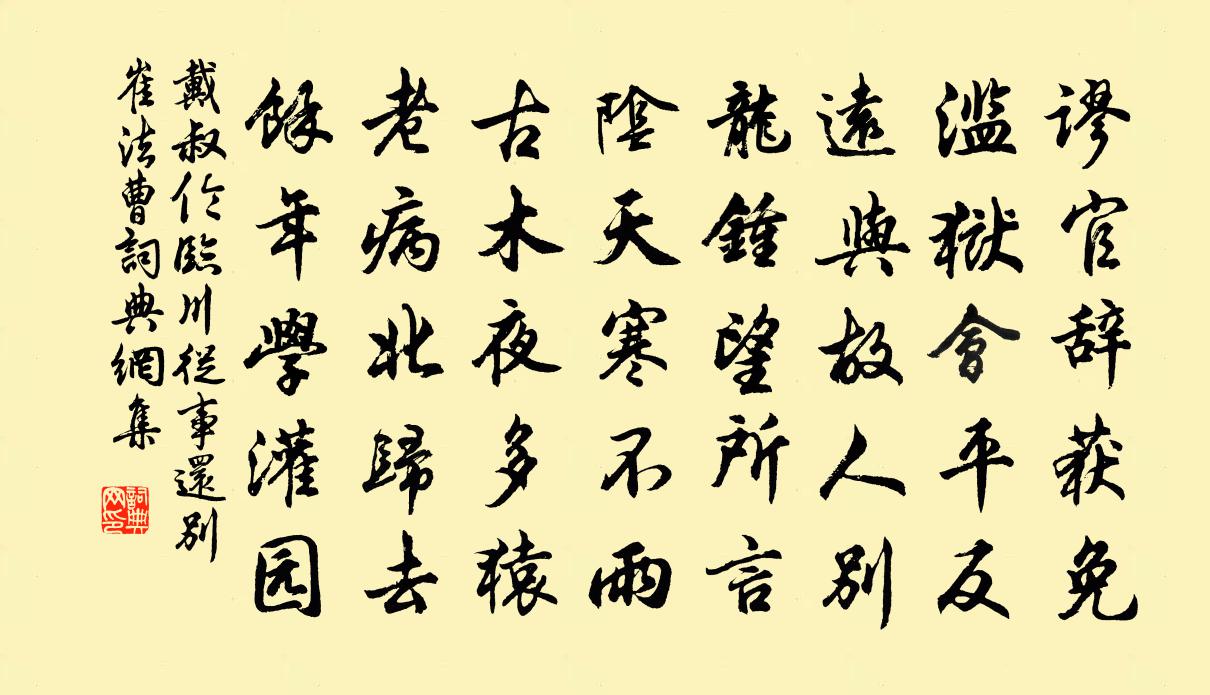 谬官辞获免
滥獄會平反
遠與故人别
龍鍾望所言
陰天寒不雨
古木夜多猿
老病北歸去
餘年學灌园
戴叔伦臨川從事還别
崔法曹詞典網集
詞典网印